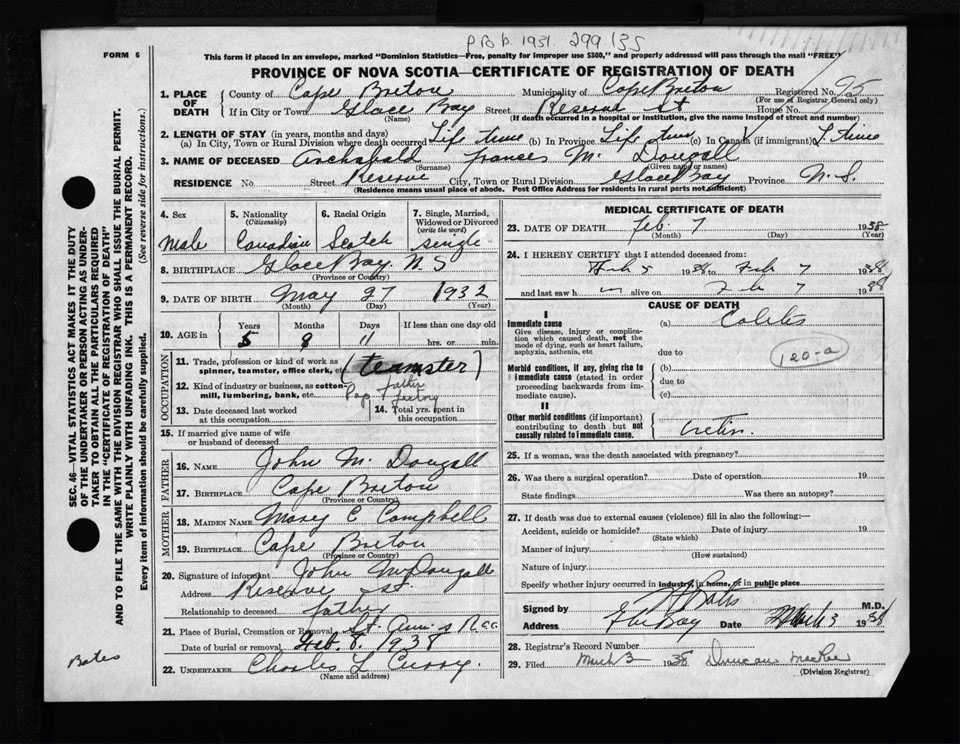 1931. 299 135
FORM 6
This form if placed in an envelope, marked "Dominion Statistics—Free, penalty for improper use $300," and properly addressed will pass through the mail "FREE"
PROVINCE OF NOVA SCOTIA—CERTIFICATE OF REGISTRATION OF DEATH
1. PLACE OF DEATH County of Cape Breton Municipality of Cape Breton Registered No. 95
(For use of Registrar General only)
If in City or Town Glace Bay Street Reserve St House No.
(Name) (If death occurred in a hospital or institution, give the name instead of street and number)
2. LENGTH OF STAY (in years, months and days)
(a) In City, Town or Rural Division where death occurred Life time (b) In Province Life time (c) In Canada (if immigrant) L time
3. NAME OF DECEASED Archabald Frances Mc Dougall
(Surname) (Given name or names)
RESIDENCE No. Street Reserve City, Town or Rural Division Glace Bay Province N. S.
(Residence means usual place of abode. Post Office Address for residents in rural parts not sufficient)
4. Sex Male
5. Nationality (Citizenship) Canadian
6. Racial Origin Scotch
7. Single, Married, Widowed or Divorced (write the word) single
8. BIRTHPLACE Glace Bay. N. S
(Province or Country)
9. DATE OF BIRTH May 27 1932
(Month) (Day) (Year)
10. AGE in Years Months Days If less than one day old
5 8 11 hrs. or min.
OCCUPATION
11. Trade, profession or kind of work as spinner, teamster, office clerk, etc. (teamster)
father
12. Kind of industry or business, as cotton-mill, lumbering, bank, etc. Pop factory
13. Date deceased last worked at this occupation
14. Total yrs. spent in this occupation
15. If married give name of wife or husband of deceased
FATHER
16. NAME John Mc Dougall
17. BIRTHPLACE Cape Breton
(Province or Country)
MOTHER
18. MAIDEN NAME Mary C Campbell
19. BIRTHPLACE Cape Breton
(Province or Country)
20. Signature of informant John McDougall
Address Reserve St.
Relationship to deceased father
21. Place of Burial, Cremation or Removal St. Ann's
Date of burial or removal Feb. 8. 1938
22. UNDERTAKER Charles L Curry.
(Name and address)
MEDICAL CERTIFICATE OF DEATH
23. DATE OF DEATH Feb. 7 1938
(Month) (Day) (Year)
24. I HEREBY CERTIFY that I attended deceased from:
Feb 5 1938 to Feb 7 1938
and last saw h m alive on Feb 7 1938
CAUSE OF DEATH
I
Immediate cause
Give disease, injury or complication which caused death, not the mode of dying, such as heart failure, asphyxia, asthenia, etc
(a) Colitis
due to
120-a
Morbid conditions, if any, giving rise to immediate cause (stated in order proceeding backwards from immediate cause).
(b)
due to
(c)
II
Other morbid conditions (if important) contributing to death but not causally related to immediate cause.
Cretin.
25. If a woman, was the death associated with pregnancy?
26. Was there a surgical operation? Date of operation 19
State findings Was there an autopsy?
27. If death was due to external causes (violence) fill in also the following:—
Accident, suicide or homicide? Date of injury 19
(State which)
Manner of injury
(How sustained)
Nature of injury
Specify whether injury occurred in industry, in home, or in public place
Signed by Bates M.D.
Address Gl Bay Date March 3 1938
28. Registrar's Record Number
29. Filed March 3 1938 Duncan MacRae
(Division Registrar)
SEC. 46—VITAL STATISTICS ACT MAKES IT THE DUTY
OF THE UNDERTAKER OR PERSON ACTING AS UNDER-
TAKER TO OBTAIN ALL THE PARTICULARS REQUIRED
IN THE "CERTIFICATE OF REGISTRATION OF DEATH"
AND TO FILE THE SAME WITH THE DIVISION REGISTRAR WHO SHALL ISSUE THE BURIAL PERMIT.
WRITE PLAINLY WITH UNFADING INK. THIS IS A PERMANENT RECORD.
Every item of information should be carefully supplied. (See reverse side for instructions.)
Bates